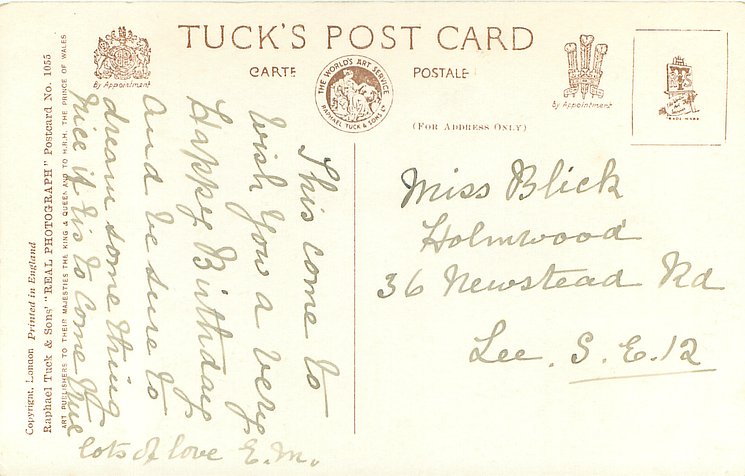 TUCK'S POST CARD
CARTE POSTALE
By Appointment
THE WORLD'S ART SERVICE
RAPHAEL TUCK & SONS LTD
By Appointment
(FOR ADDRESS ONLY)
TRADE MARK
Copyright, London Printed in England
Raphael Tuck & Sons' "REAL PHOTOGRAPH" Postcard No. 1055
ART PUBLISHERS TO THEIR MAJESTIES THE KING & QUEEN AND TO H.R.H. THE PRINCE OF WALES
This come to
wish you a very
Happy Birthday
And be sure to
dream some thing
nice if tis to come true
lots of love E.M.
Miss Blick
Holmwood
36 Newstead Rd
Lee. S.E.12